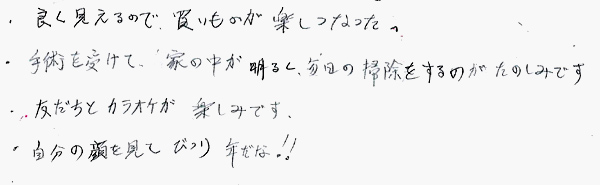 ・良く見えるので、買いものが楽しつなった。
・手術を受けて、家の中が明るく、毎日の掃除をするのがたのしみです
・友だちとカラオケが楽しみです、
・自分の顔を見てびつり 年だな!!